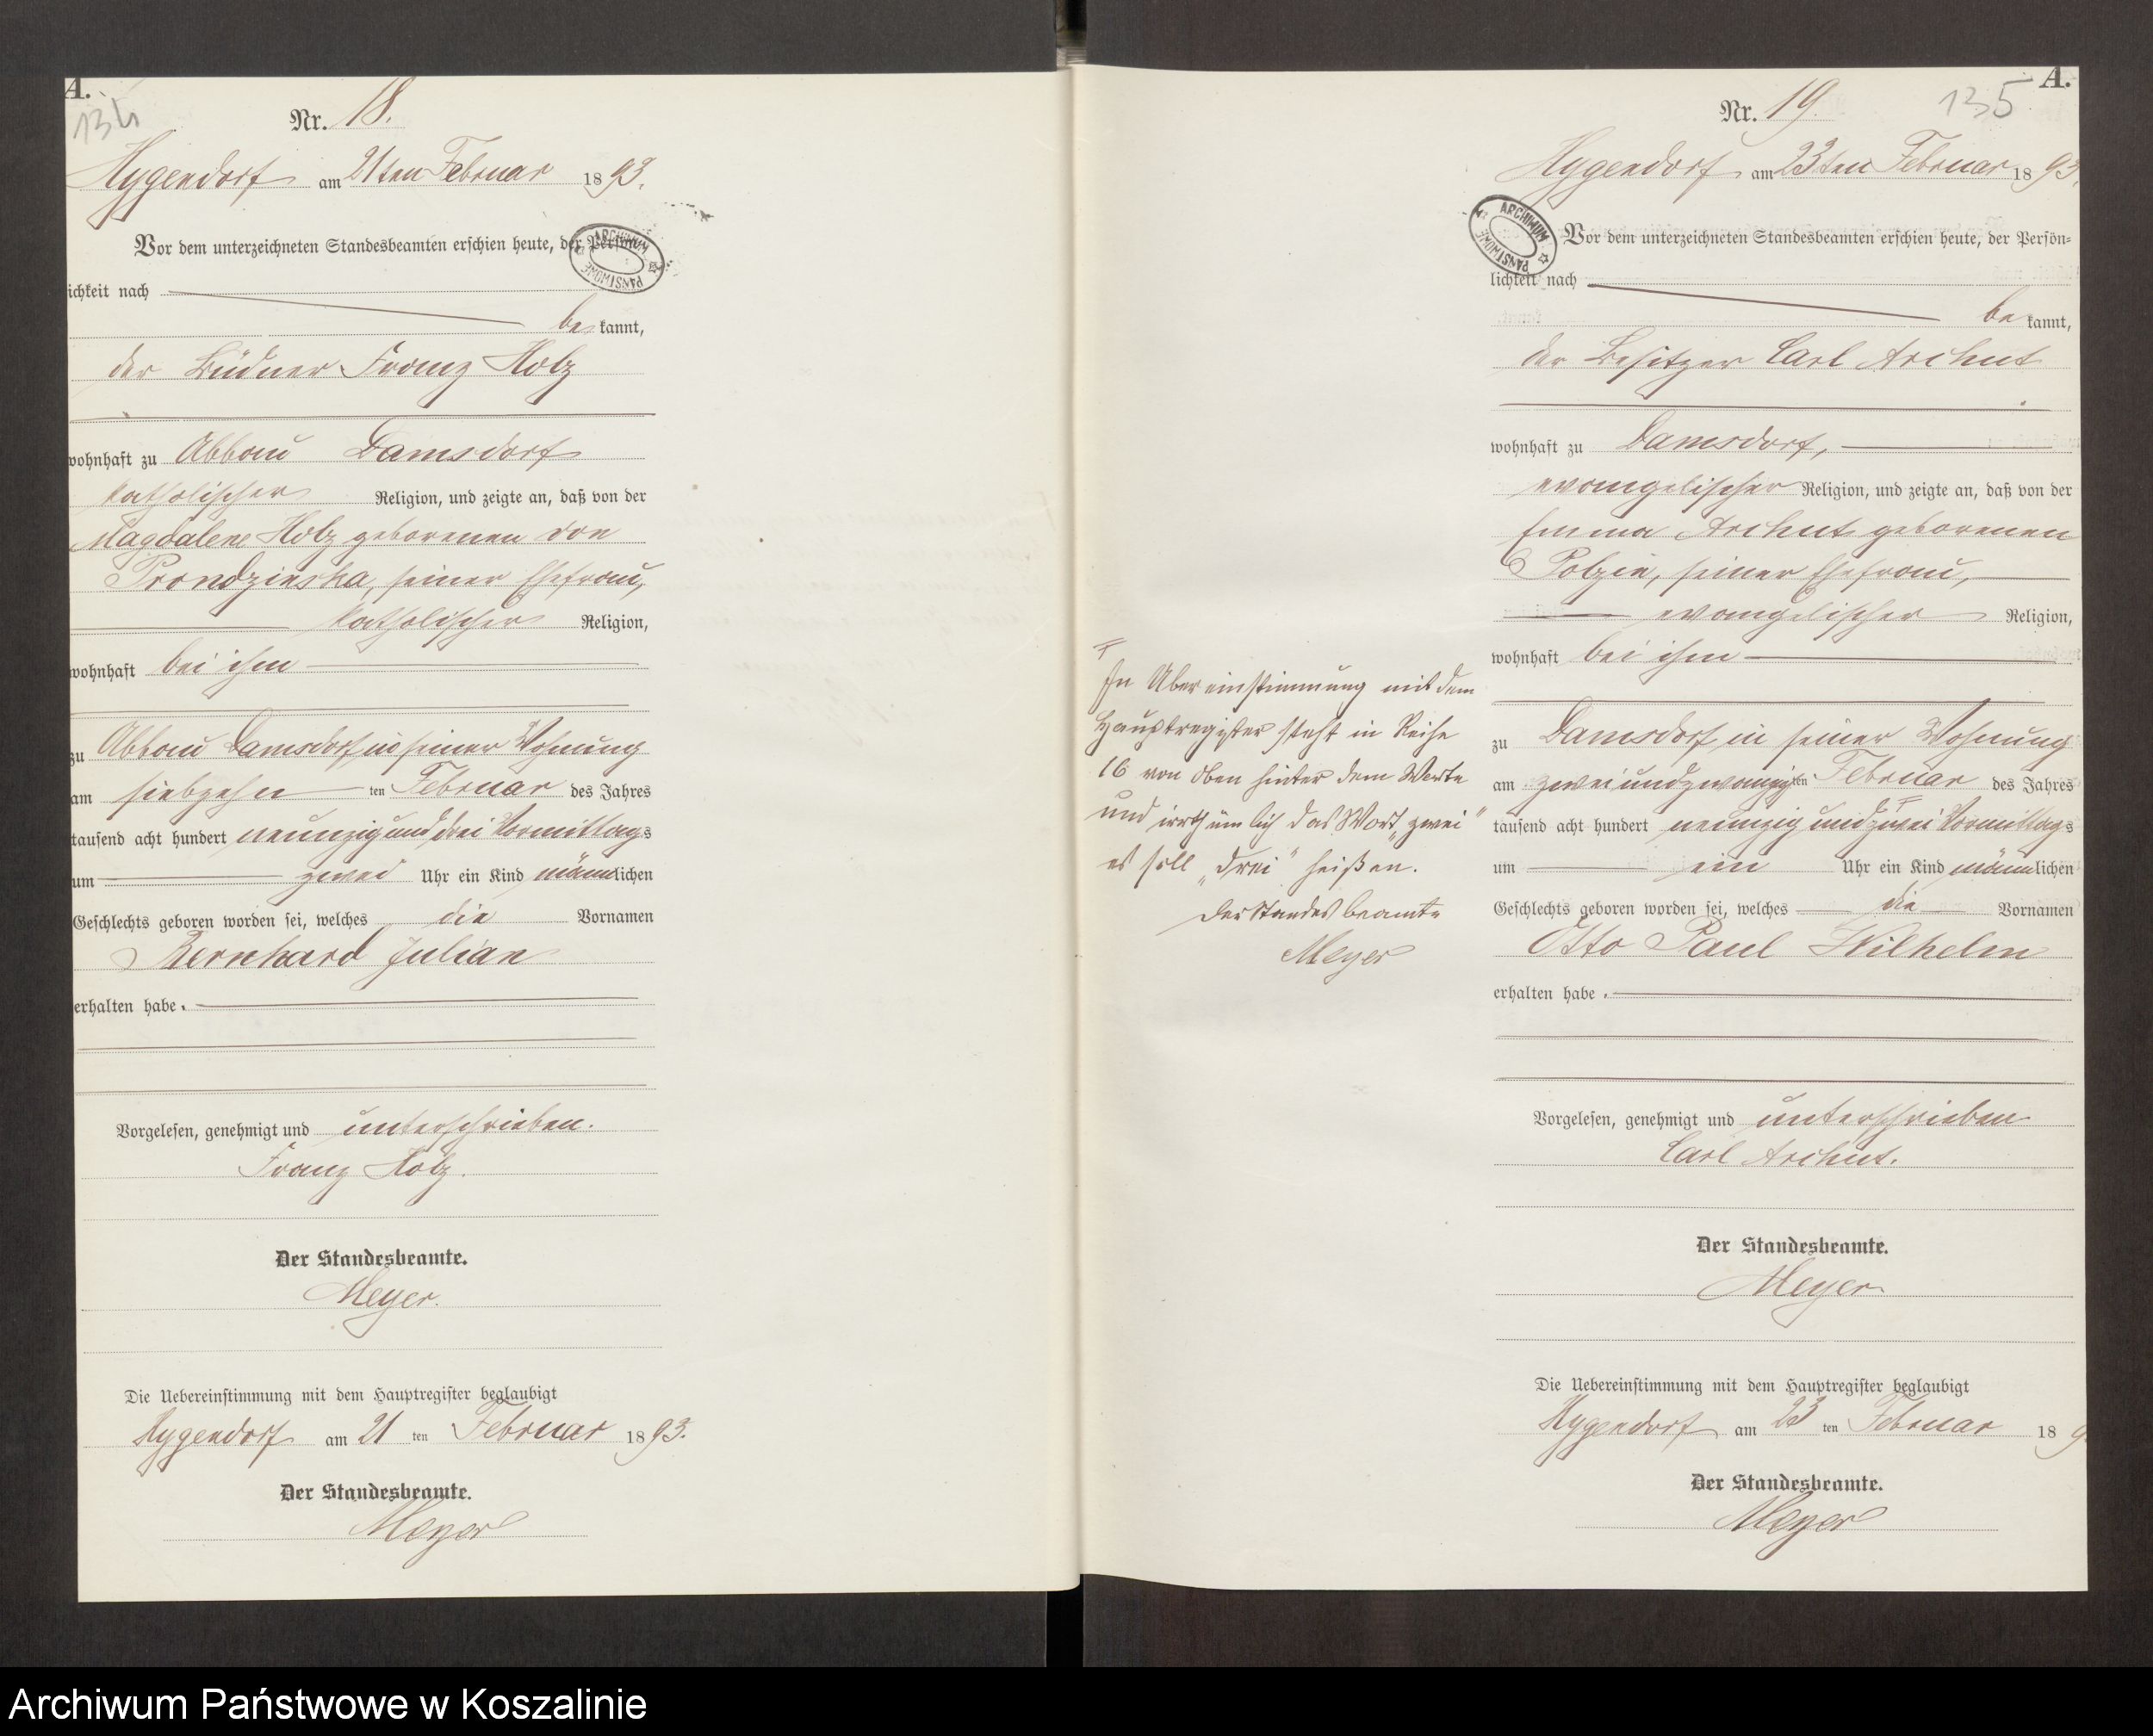 A.
134
Nr. 18.
Hygendorf am 21ten Februar 1893.
Vor dem unterzeichneten Standesbeamten erschien heute, der Persön-
ichkeit nach
be kannt,
der Büdner Franz Holz
wohnhaft zu Abbau Damsdorf
katholischer Religion, und zeigte an, daß von der
Magdalene Holz geborenen von
Prondzinska, seiner Ehefrau,
katholischer Religion,
wohnhaft bei ihm
zu Abbau Damsdorf in seiner Wohnung
am siebzehn ten Februar des Jahres
tausend acht hundert neunzig und drei Vormittags
um zwei Uhr ein Kind männlichen
Geschlechts geboren worden sei, welches die Vornamen
Bernhard Julian
erhalten habe.
Vorgelesen, genehmigt und unterschrieben.
Franz Holz.
Der Standesbeamte.
Meyer.
Die Uebereinstimmung mit dem Hauptregister beglaubigt
Hygendorf am 21 ten Februar 1893.
Der Standesbeamte.
Meyer
ARCHIWUM PAŃSTWOWE
In Übereinstimmung mit dem
Hauptregister steht in Reihe
16 von oben hinter dem Worte
und irrthümlich das Wort „zwei"
es soll „drei" heißen.
Der Standesbeamte
Meyer
A.
135
Nr. 19.
Hygendorf am 23ten Februar 1893.
ARCHIWUM PAŃSTWOWE
Vor dem unterzeichneten Standesbeamten erschien heute, der Persön-
lichkeit nach
be kannt,
der Besitzer Carl Archut
wohnhaft zu Damsdorf,
evangelischer Religion, und zeigte an, daß von der
Emma Archut geborenen
Polzin, seiner Ehefrau,
evangelischer Religion,
wohnhaft bei ihm
zu Damsdorf in seiner Wohnung
am zweiundzwanzigten Februar des Jahres
tausend acht hundert neunzig und zwei Vormittags
um ein Uhr ein Kind männlichen
Geschlechts geboren worden sei, welches die Vornamen
Otto Paul Wilhelm
erhalten habe.
Vorgelesen, genehmigt und unterschrieben
Carl Archut.
Der Standesbeamte.
Meyer
Die Uebereinstimmung mit dem Hauptregister beglaubigt
Hygendorf am 23 ten Februar 189
Der Standesbeamte.
Meyer
Archiwum Państwowe w Koszalinie